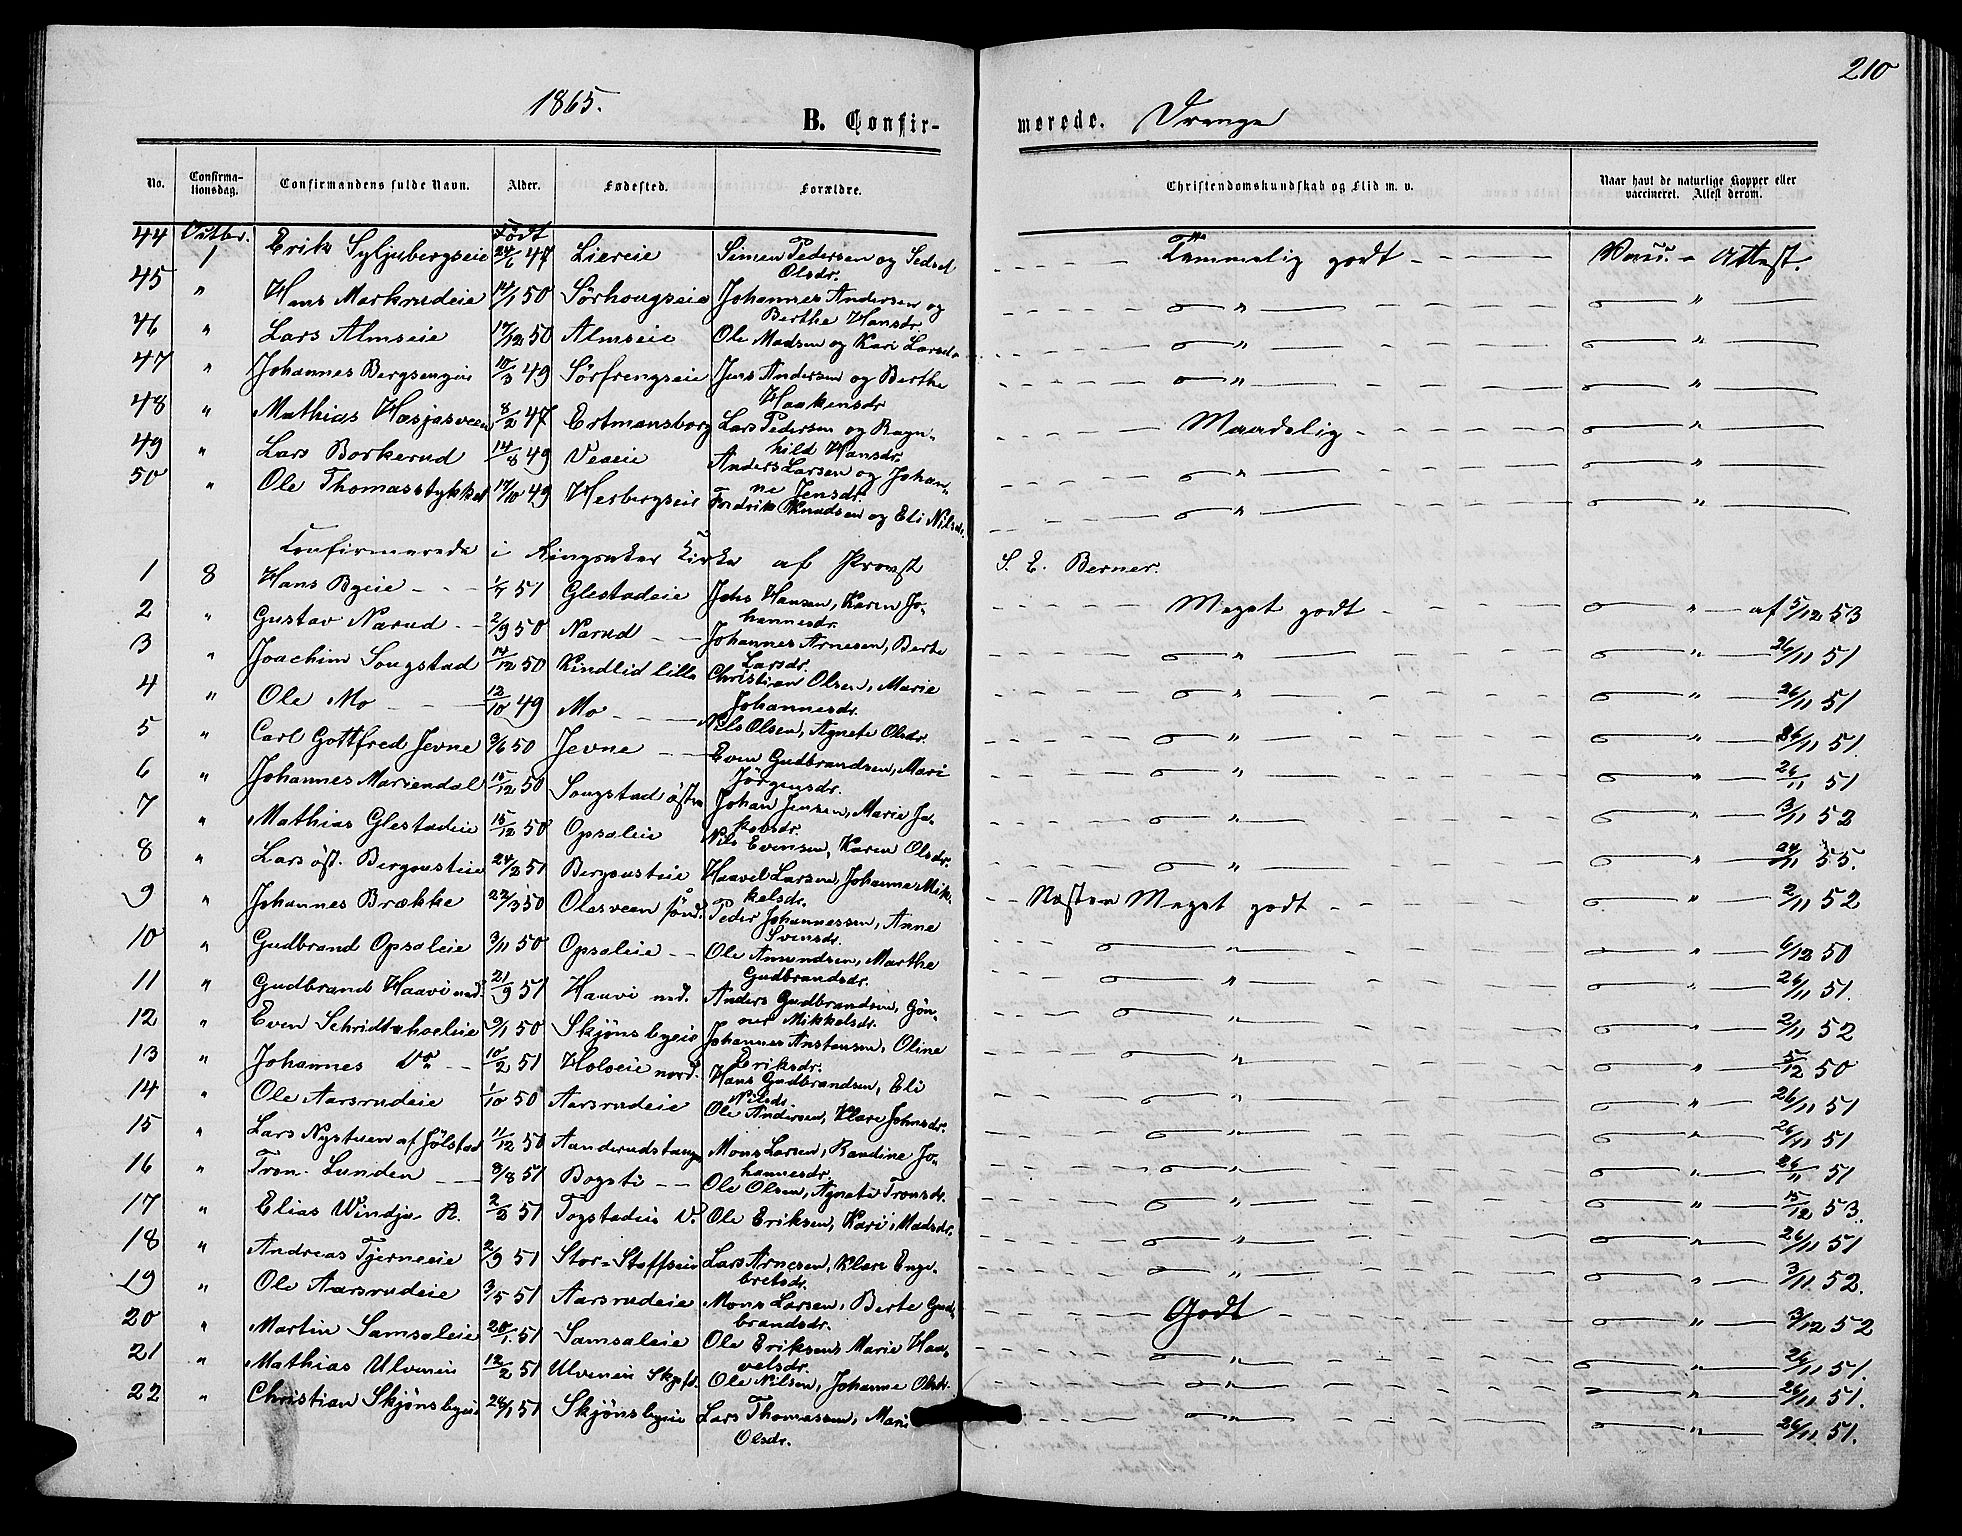 210
1865.
B. Confir-
merede. Drenge
No. Confirma-tionsdag. Confirmandens fulde Navn. Alder. Fødested. Forældre. Christendomskundskab og Flid m. v. Naar havt de naturlige Kopper eller vaccineret. Attest derom.
44 Octbr. 1 Erik Syljubergseie Födt 24/6 47 Liereie Simen Pedersen og Sedsel Olsdr. Temmelig godt Vacc. - Attest.
45 " Hans Markrudeie 14/1 50 Sörhougseie Johannes Andersen og Berthe Hansdr. " "
46 " Lars Almseie 17/12 50 Almseie Ole Madsen og Kari Larsdr. " "
47 " Johannes Bergsengeie 10/3 49 Sörfrengseie Jens Andersen og Berthe Haakensdr " "
48 " Mathias Hasjasveen 8/2 47 Ertmansborg Lars Pedersen og Ragn-hild Hansdr. Maadelig "
49 " Lars Borkerud 14/8 49 Veaeie Anders Larsen og Johan-ne Jensdr. " "
50 " Ole Thomasstykket 17/10 49 Herbergseie Fredrik Knudsen og Eli Nilsdr. " "
Confirmerede i Ringsaker Kirke af Provst S. E. Berner.
1 8 Hans Byeie 1/7 51 Glestadeie Johs Hansen, Karen Jo-hannesdr. Meget godt " af 5/12 53
2 " Gustav Narud 2/9 50 Narud Johannes Arnesen, Berte Larsdr. " " 26/11 51
3 " Joachim Songstad 14/12 50 Kindlid lille Christian Olsen, Marie Johannesdr. " " 26/11 51
4 " Ole Mo 12/10 49 Mo Nils Olsen, Agnete Olsdr. " " 26/11 51.
5 " Carl Gottfred Jevne 9/6 50 Jevne Even Gudbrandsen, Mari Jörgensdr. " " 26/11 51
6 " Johannes Mariendal 15/12 50 Songstad östre Johan Jensen, Marie Ja-kobsdr. " " 3/11 52
7 " Mathias Glestadeie 15/12 50 Opsaleie Nils Evensen, Karen Olsdr. " " 24/11 55.
8 " Lars öst. Bergousteie 24/2 51 Bergousteie Haavel Larsen, Johanne Mik-kelsdr. Næsten Meget godt " 2/11 52
9 " Johannes Brække 22/3 50 Olasveen sönd. Peder Johannessen, Anne Svensdr. " " 6/12 50
10 " Gudbrand Opsaleie 3/11 50 Opsaleie Ole Amundsen, Marthe Gudbrandsdr. " " 26/11 51.
11 " Gudbrand Haavi ned. 21/9 51 Haavi ned. Anders Gudbrandsen, Gön-ner Mikkelsdr. " " 2/11 52
12 " Even Schridtshoeleie 9/1 50 Skjönsbyeie Johannes Anstensen, Oline Eriksdr. " " 5/12 50
13 " Johannes Do 10/2 51 Holveie nord. Hans Gudbrandsen, Eli Nilsdr. " " 26/11 51
14 " Ole Aarsrudeie 1/10 50 Aarsrudeie Ole Andersen, Klare Johnsdr. " " 26/11 51
15 " Lars Nystuen af Jölstad 11/12 50 Aanderudstange Mons Larsen, Randine Jo-hannesdr. " " 26/11 51
16 " Tron Lunden 8/8 51 Bogsti Ole Olsen, Agnete Tronsdr. " " 15/12 53.
17 " Elias Windju A. 2/2 51 Togstadeie V. Ole Eriksen, Kari Madsdr. " " 26/11 51
18 " Andreas Tjerneeie 2/9 51 Stor-Stoffseie Lars Arnesen, Klare Enge-bretsdr. " " 3/11 52.
19 " Ole Aarsrudeie 3/5 51 Aarsrudeie Mons Larsen, Berte Gud-brandsdr. Godt " 3/12 52
20 " Martin Samsaleie 20/1 51 Samsaleie Ole Eriksen, Marie Haa-velsdr. " " 26/11 51.
21 " Mathias Ulveneie 12/2 51 Ulveneie Ole Nilsen, Johanne Olsdr. " " 26/11 51.
22 " Christian Skjönsbyeie 28/1 51 Skjönsbyeie Lars Thomassen, Marie Olsdr. " " 26/11 51.